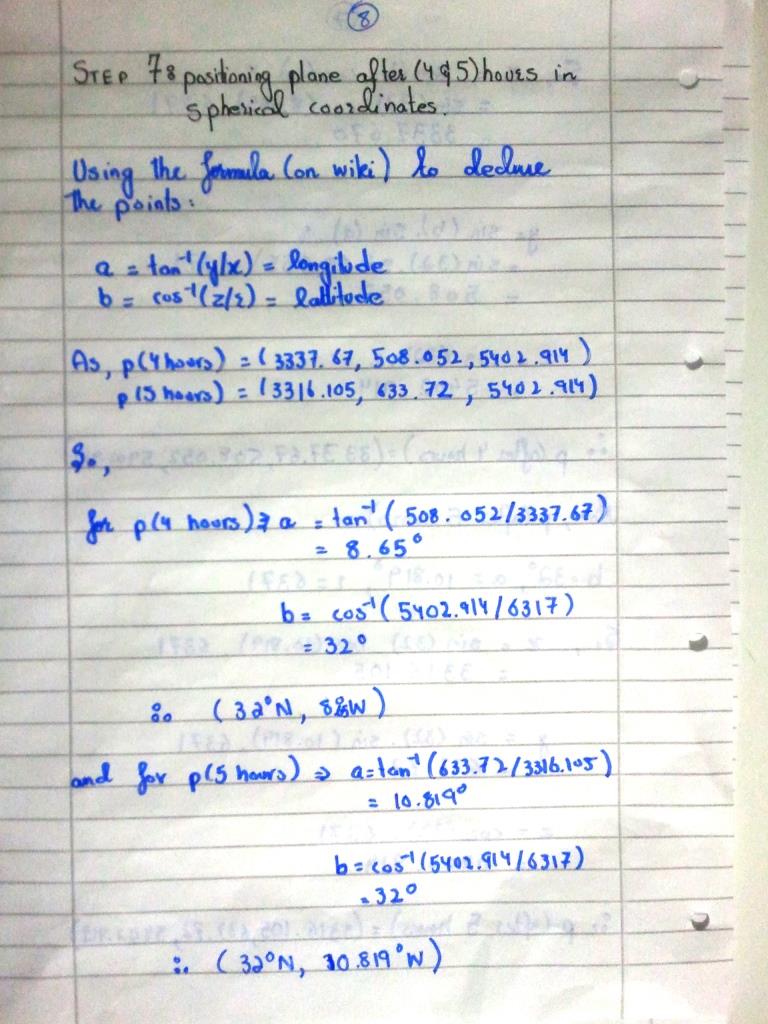 8
STEP 7: positioning plane after (4 & 5) hours in
spherical coordinates.
Using the formula (on wiki) to deduce
the points:
a = tan⁻¹(y/x) = longitude
b = cos⁻¹(z/r) = lattitude
As, p(4 hours) = (3337.67, 508.052, 5402.914)
p(5 hours) = (3316.105, 633.72, 5402.914)
So,
for p(4 hours) ⇒ a = tan⁻¹(508.052/3337.67)
= 8.65°
b = cos⁻¹(5402.914/6317)
= 32°
∴ (32°N, W)
and for p(5 hours) ⇒ a = tan⁻¹(633.72/3316.105)
= 10.819°
b = cos⁻¹(5402.914/6317)
= 32°
∴ (32°N, 10.819°W)